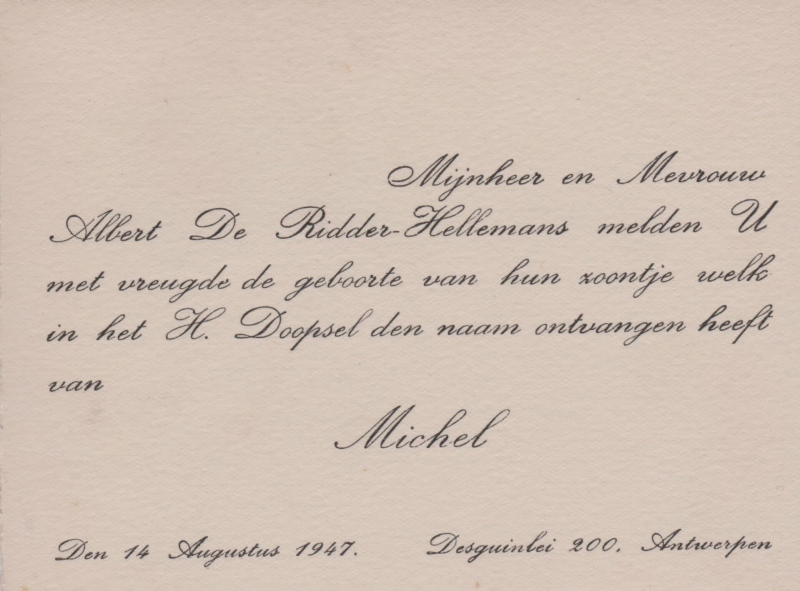 Mijnheer en Mevrouw
Albert De Ridder-Hellemans melden U
met vreugde de geboorte van hun zoontje welk
in het H. Doopsel den naam ontvangen heeft
van
Michel
Den 14 Augustus 1947. Desguinlei 200. Antwerpen